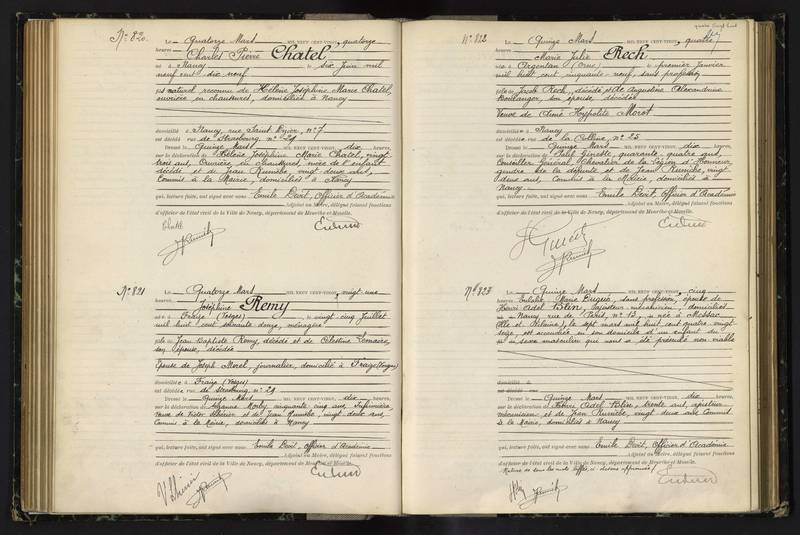 N° 820. Le Quatorze Mars MIL NEUF CENT-VINGT, quatorze
heures, Charles Pierre Chatel
né à Nancy le six Juin mil
neuf cent dix neuf
fils naturel reconnu de Hélène Joséphine Marie Chatel,
ouvrière en chaussures, domiciliée à Nancy
domicilié à Nancy, rue Saint Dizier, n° 7
est décédé rue de Strasbourg, n° 29
Dressé le Quinze Mars MIL NEUF CENT-VINGT, dix heures,
sur la déclaration de Hélène Joséphine Marie Chatel, vingt
trois ans, Ouvrière en chaussures, mère de l'enfant
décédé et de Jean Kuniche, vingt deux ans,
Commis à la Mairie, domiciliés à Nancy
qui, lecture faite, ont signé avec nous Emile Devit, Officier d'Académie
Adjoint au Maire, délégué faisant fonctions
d'officier de l'état civil de la Ville de Nancy, département de Meurthe-et-Moselle.
N° 821 Le Quatorze Mars MIL NEUF CENT-VINGT, vingt une
heures, Joséphine Remy
née à Fraize (Vosges) le vingt cinq Juillet
mil huit cent soixante douze, ménagère
fille de Jean Baptiste Remy, décédé et de Célestine Lemaire,
son épouse, décédée
Epouse de Joseph Morel, journalier, domicilié à Fraize (Vosges)
domiciliée à Fraize (Vosges)
est décédée rue de Strasbourg, n° 29
Dressé le Quinze Mars MIL NEUF CENT-VINGT, dix heures,
sur la déclaration de cinquante cinq ans, Infirmière
Veuve de Victor et de Jean Kuniche, vingt deux ans,
Commis à la Mairie, domiciliés à Nancy
qui, lecture faite, ont signé avec nous Emile Devit, Officier d'Académie
Adjoint au Maire, délégué faisant fonctions
d'officier de l'état civil de la Ville de Nancy, département de Meurthe-et-Moselle.
N° 822 Le Quinze Mars MIL NEUF CENT-VINGT, quatre
heures, Marie Julie Rech
née à Argentan (Orne) le premier Janvier
mil huit cent cinquante neuf, sans profession
fille de Jacob Rech, décédé et de Augustine Alexandrine
Boulanger, son épouse, décédée
Veuve de Aimé Hypolite Morot
domiciliée à Nancy
est décédée rue de la Colline, n° 25
Dressé le Quinze Mars MIL NEUF CENT-VINGT, dix heures,
sur la déclaration de quarante quatre ans,
Conseiller Général, Chevalier de la Légion d'Honneur,
gendre de la défunte et de Jean Kuniche, vingt
deux ans, Commis à la Mairie, domiciliés à
Nancy
qui, lecture faite, ont signé avec nous Emile Devit, Officier d'Académie
Adjoint au Maire, délégué faisant fonctions
d'officier de l'état civil de la Ville de Nancy, département de Meurthe-et-Moselle.
N° 823 Le Quinze Mars MIL NEUF CENT-VINGT, cinq
heures, Eulalie Marie sans profession, épouse de
Henri Adel Blin, domiciliée
à Nancy, rue de Paris, n° 13, née à Messac
(Ille et Vilaine), le sept mars mil huit cent quatre vingt
seize, est accouchée en son domicile d'un enfant du
sexe masculin qui nous a été présenté non viable
domicilié à
est décédé rue
Dressé le Quinze Mars MIL NEUF CENT-VINGT, dix heures,
sur la déclaration de Henri Adel Blin, trente ans,
mécanicien et de Jean Kuniche, vingt deux ans Commis
à la Mairie, domiciliés à Nancy
qui, lecture faite, ont signé avec nous Emile Devit, Officier d'Académie
Adjoint au Maire, délégué faisant fonctions
d'officier de l'état civil de la Ville de Nancy, département de Meurthe-et-Moselle.